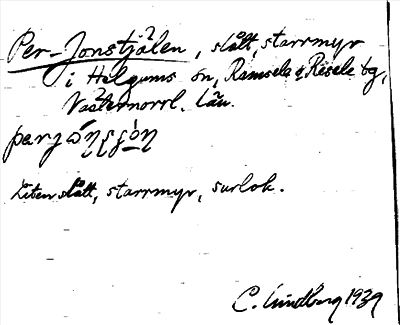 Per-Jonstjälen, slått, starrmyr
i Helgums sn, Ramsele & Resele tg,
Västernorrl. län.
Liten slått, starrmyr, surlok.
C. Lindberg 1939